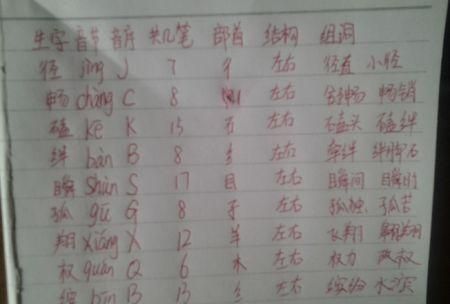 生字 音节 音序 共几笔 部首 结构 组词
径 jìng J 7 彳 左右 径直 小径
畅 chàng C 8 左右 舒畅 畅销
磕 kē K 15 石 左右 磕头 磕绊
绊 bàn B 8 纟 左右 牵绊 绊脚石
瞬 shùn S 17 目 左右 瞬间 瞬时
孤 gū G 8 子 左右 孤独 孤苦
翔 xiáng X 12 羊 左右 飞翔 翱翔
权 quán Q 6 木 左右 权力 政权
缤 bīn B 13 纟 左右 缤纷